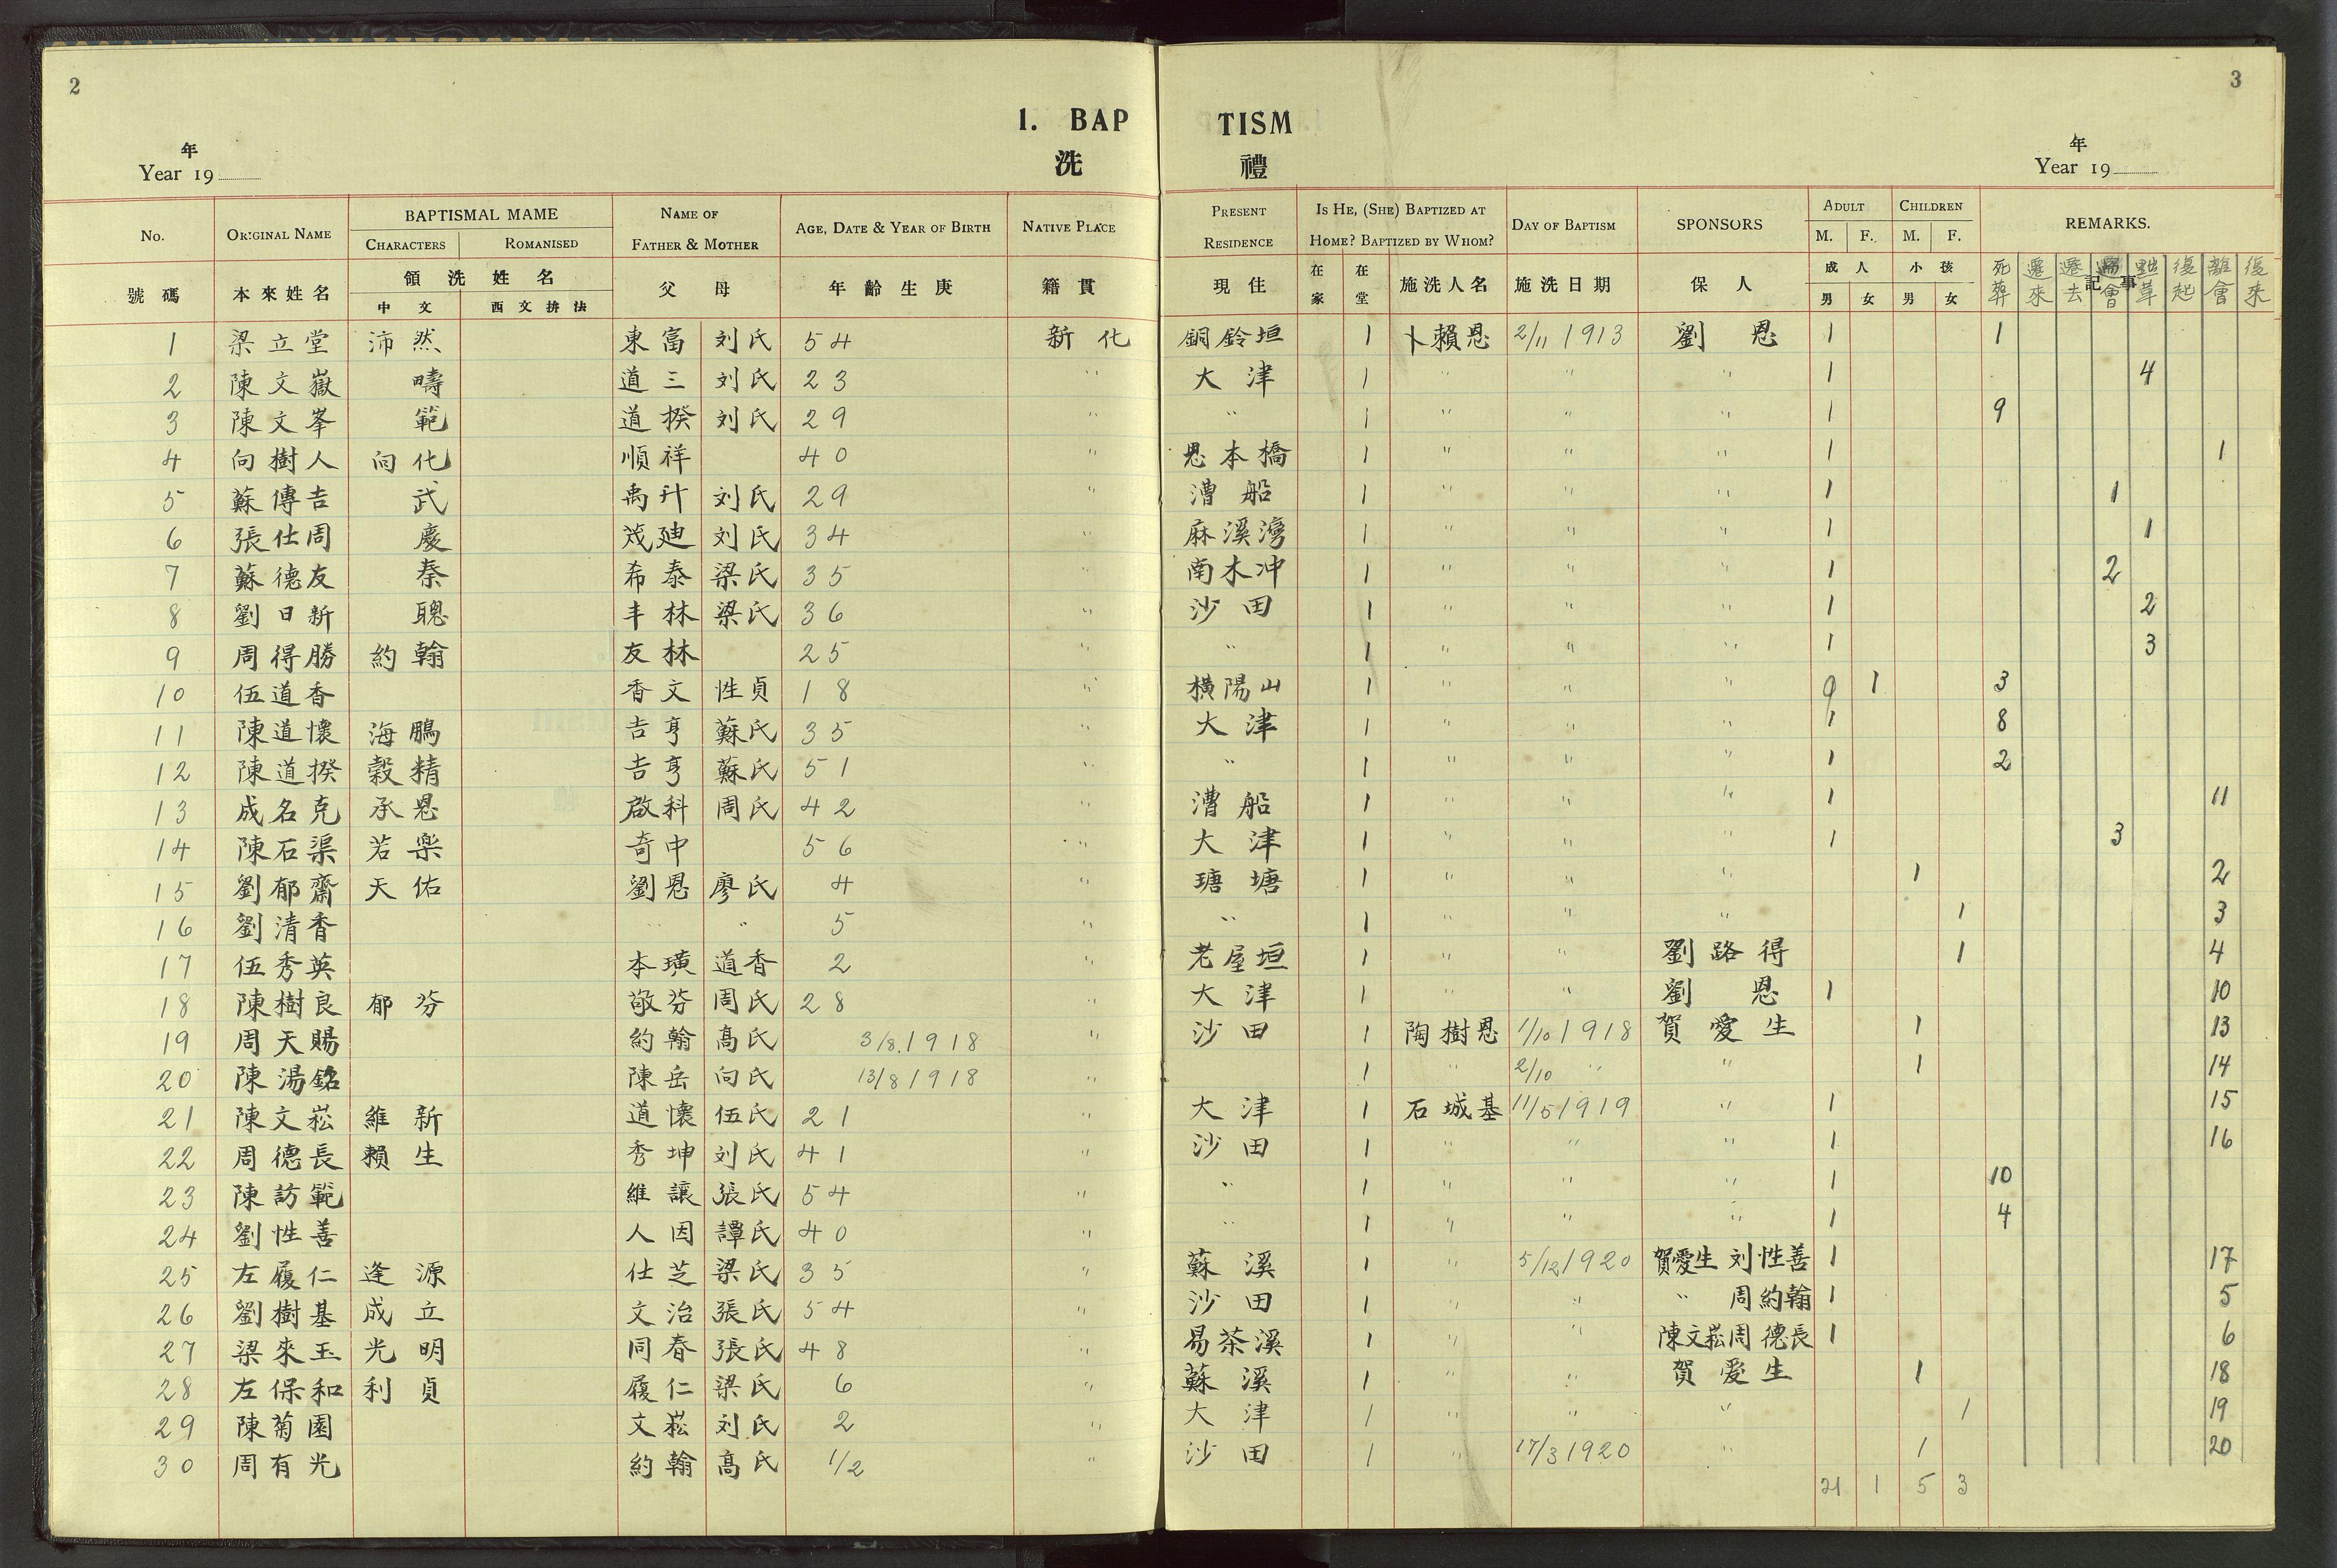 2
3
1. BAP TISM
洗 禮
年
Year 19
年
Year 19
No. ORIGINAL NAME BAPTISMAL MAME NAME OF FATHER & MOTHER AGE, DATE & YEAR OF BIRTH NATIVE PLACE PRESENT RESIDENCE IS HE, (SHE) BAPTIZED AT HOME? BAPTIZED BY WHOM? DAY OF BAPTISM SPONSORS ADULT CHILDREN REMARKS.
CHARACTERS ROMANISED M. F. M. F.
號碼 本來姓名 領洗姓名 父母 年齡生庚 籍貫 現住 在家 在堂 施洗人名 施洗日期 保人 成人 小孩 記事
中文 西文拼法 男 女 男 女 死葬 遷來 遷去 會 革 復起 離會 復來
1 梁立堂 沛然 東富 刘氏 54 新化 銅鈴垣 1 卜賴恩 2/11 1913 劉恩 1 1
2 陳文嶽 疇 道三 刘氏 23 " 大津 1 " " " 1 4
3 陳文峯 範 道揆 刘氏 29 " " 1 " " " 1 9
4 向樹人 向化 順祥 40 " 恩本橋 1 " " " 1 1
5 蘇傳吉 武 禹升 刘氏 29 " 漕船 1 " " " 1 1
6 張仕周 慶 茂廸 刘氏 34 " 麻溪灣 1 " " " 1 1
7 蘇德友 秦 希泰 梁氏 35 " 南木冲 1 " " " 1 2
8 劉日新 聰 丰林 梁氏 36 " 沙田 1 " " " 1 2
9 周得勝 約翰 友林 25 " " 1 " " " 1 3
10 伍道香 香文 性貞 18 " 橫陽山 1 " " " 1 3
11 陳道懷 海鵬 吉亨 蘇氏 35 " 大津 1 " " " 1 8
12 陳道揆 穀精 吉亨 蘇氏 51 " " 1 " " " 1 2
13 成名克 承恩 啟科 周氏 42 " 漕船 1 " " " 1 11
14 陳石渠 若樂 奇中 56 " 大津 1 " " " 1 3
15 劉郁齋 天佑 劉恩 廖氏 4 " 瑭塘 1 " " " 1 2
16 劉清香 " " 5 " " 1 " " " 1 3
17 伍秀英 本璜 道香 2 " 老屋垣 1 " " 劉路得 1 4
18 陳樹良 郁芬 敬芬 周氏 28 " 大津 1 " " 劉恩 1 10
19 周天賜 約翰 高氏 3/8 1918 " 沙田 1 陶樹恩 1/10 1918 賀愛生 1 13
20 陳湯銘 陳岳 向氏 13/8 1918 " 1 " 2/10 " " 1 14
21 陳文崧 維新 道懷 伍氏 21 " 大津 1 石城基 11/5 1919 " 1 15
22 周德長 賴生 秀坤 刘氏 41 " 沙田 1 " " " 1 16
23 陳訪範 維讓 張氏 54 " " 1 " " " 1 10
24 劉性善 人因 譚氏 40 " " 1 " " " 1 4
25 左履仁 逢源 仕芝 梁氏 35 " 蘇溪 1 " 5/12 1920 賀愛生 刘性善 1 17
26 劉樹基 成立 文治 張氏 54 " 沙田 1 " " " 周約翰 1 5
27 梁來玉 光明 同春 張氏 48 " 易茶溪 1 " " 陳文崧 周德長 1 6
28 左保和 利貞 履仁 梁氏 6 " 蘇溪 1 " " 賀愛生 1 18
29 陳菊園 文崧 刘氏 2 " 大津 1 " " " 1 19
30 周有光 約翰 高氏 1/2 " 沙田 1 " 17/3 1920 " 1 20
21 1 5 3